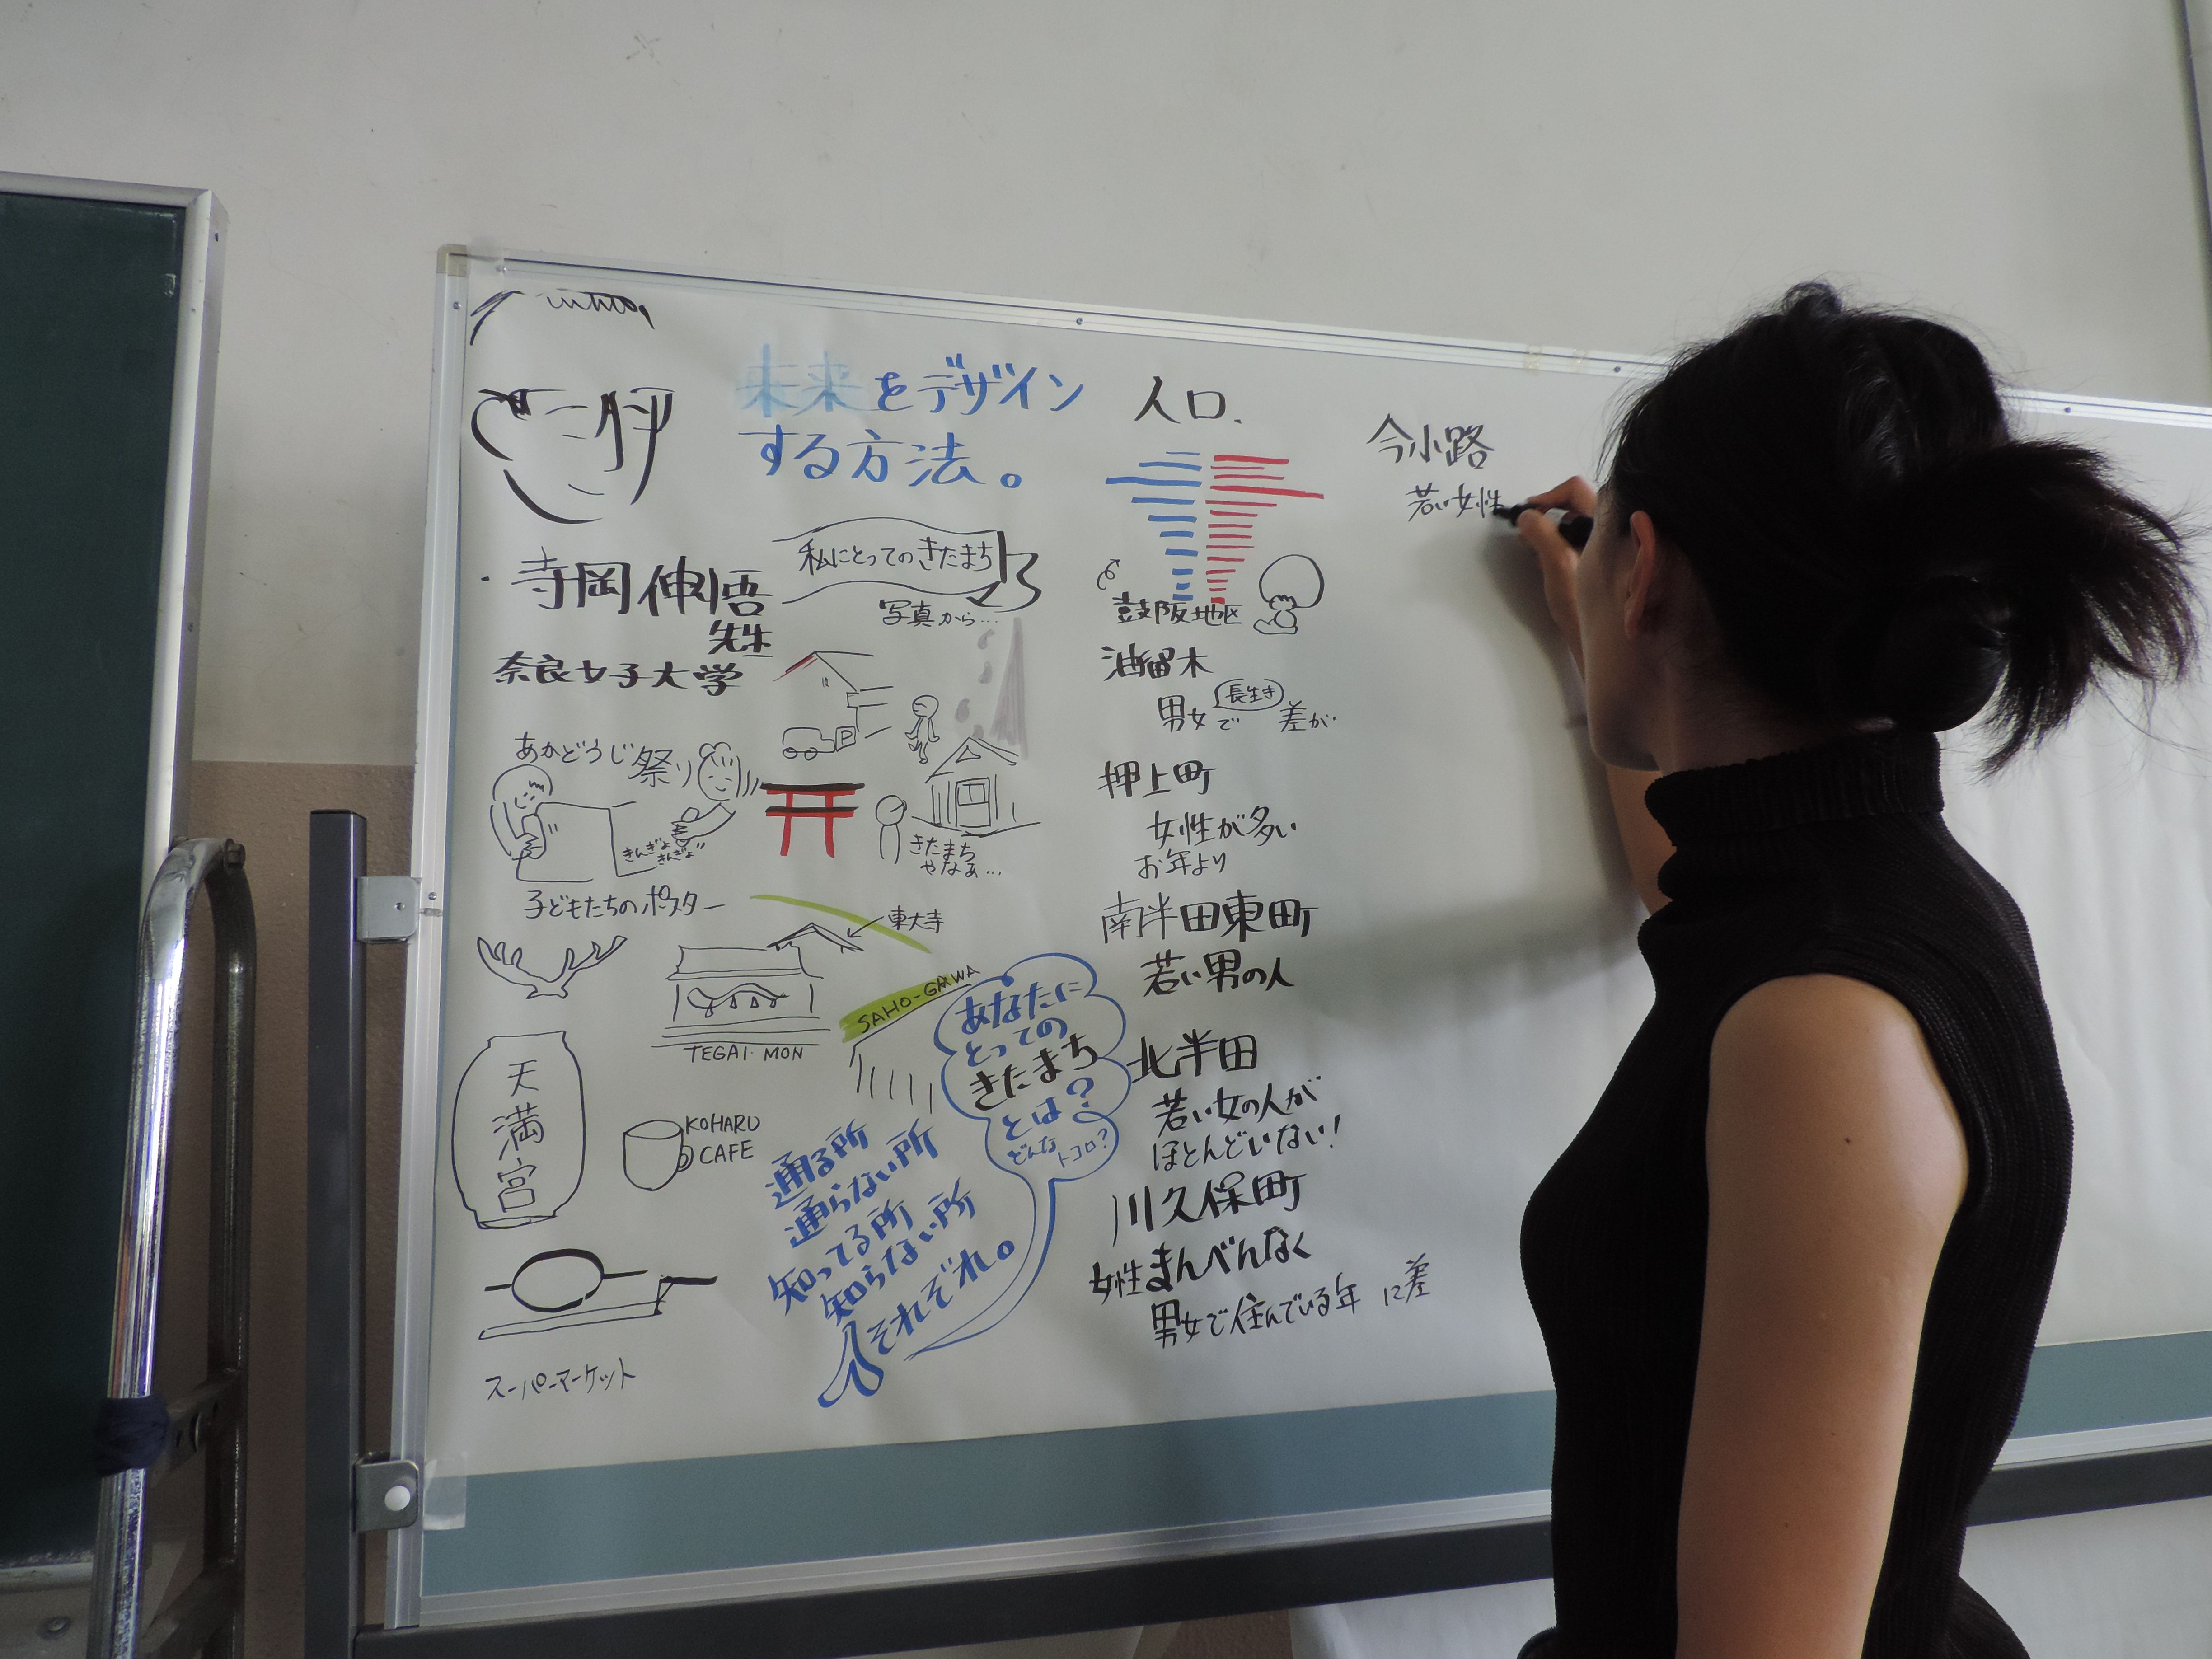 未来をデザイン
する方法。
寺岡伸悟
先生
奈良女子大学
私にとってのきたまち
写真から…
P
あかどうじ祭り
きんぎょ
きんぎょ
子どもたちのポスター
きたまち
やなぁ…
東大寺
TEGAI-MON
SAHO-GAWA
天満宮
KOHARU
CAFE
スーパーマーケット
あなたに
とっての
きたまち
とは?
どんな
トコロ?
通る所
通らない所
知ってる所
知らない所
それぞれ。
人口.
鼓阪地区
油留木
男女で長生き差が
押上町
女性が多い
お年より
南半田東町
若い男の人
北半田
若い女の人が
ほとんどいない!
川久保町
女性まんべんなく
男女で住んでいる年に差
今小路
若い女性